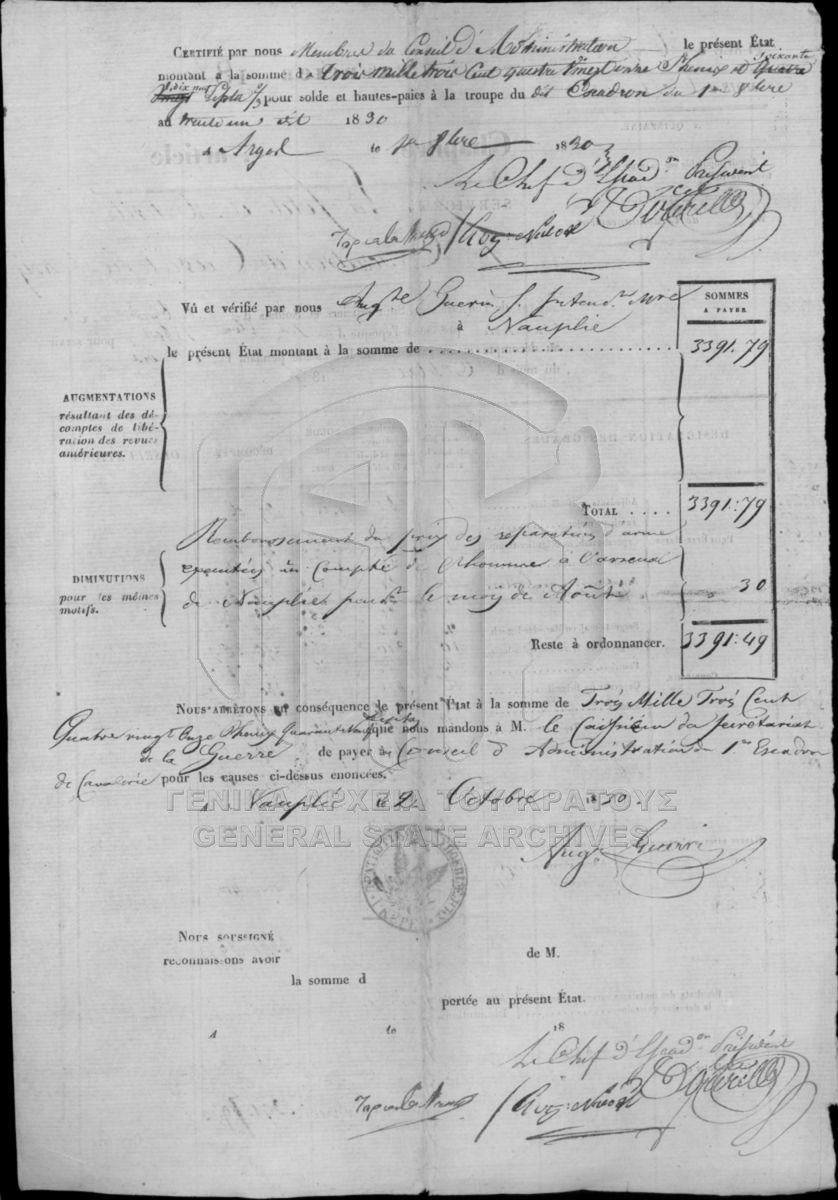 CERTIFIÉ par nous Membres du Conseil d'Administration le présent État
montant à la somme de Trois mille trois Cent quatre vingt onze Phenix et soixante
dix neuf Lepta pour solde et hautes-paies à la troupe du dit Escadron du 1er 8bre
au trente un dit 1830
A Argos le 1er 8bre 1830
Le Chef d'Escadon Président
Vû et vérifié par nous Augte Guerin S. Intendt Mre
à Nauplie
SOMMES
A PAYER
le présent État montant à la somme de 3391.79
AUGMENTATIONS
résultant des dé-
comptes de libé-
ration des revues
antérieures.
TOTAL .... 3391:79
Remboursement du prix des réparations d'arme
executées au Compte de l'homme à l'arsenal
de Nauplie pendt le mois de Août
30
DIMINUTIONS
pour les mêmes
motifs.
Reste à ordonnancer. 3391:49
NOUS ARRÊTONS en conséquence le présent État à la somme de Trois Mille Trois Cent
Quatre vingt Onze Phenix Quarante Neuf Lepta que nous mandons à M. le Caissier du Secrétariat
de la Guerre de payer au Conseil d'Administration du 1er Escadron
de Cavalerie pour les causes ci-dessus enoncées.
A Nauplie le 2 Octobre 1830.
ΓΕΝΙΚΑ ΑΡΧΕΙΑ ΤΟΥ ΚΡΑΤΟΥΣ
GENERAL STATE ARCHIVES
Augte Guerin
NOUS SOUSSIGNÉ de M.
reconnaissons avoir
la somme d
portée au présent État.
A le 18
Le Chef d'Escadon Président